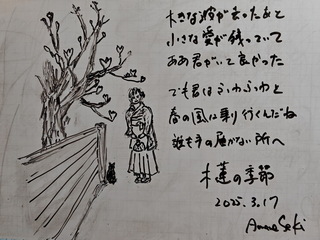 大きな波が去ったあと
小さな愛が残っていて
ああ君がいて良かった
でも君はふわふわと
春の風に乗り行くんだね
誰も手の届かない所へ
木蓮の季節
2025.3.17
Anne Seki